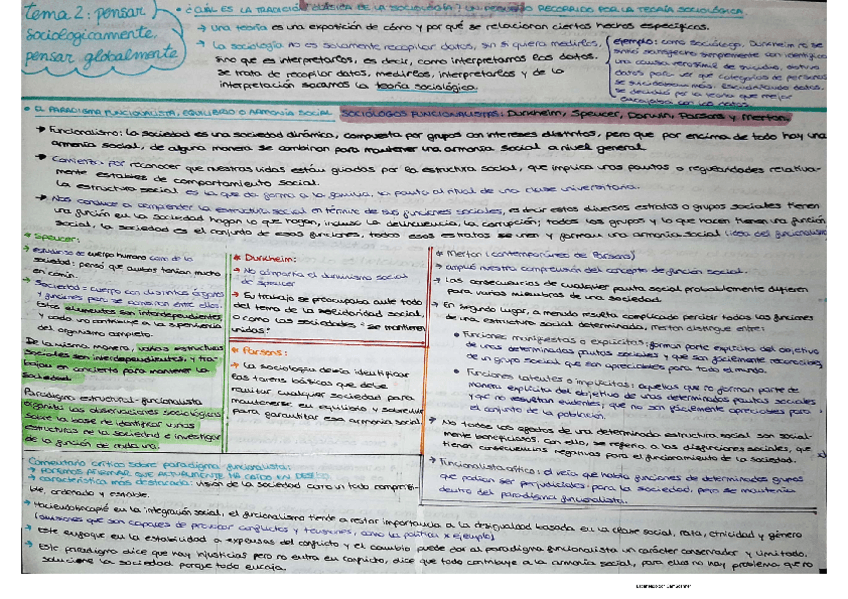 tema 2: pensar
sociologicamente,
pensar globalmente
• ¿CUÁL ES LA TRADICIÓN CLÁSICA DE LA SOCIOLOGÍA? UN PEQUEÑO RECORRIDO POR LA TEORÍA SOCIOLÓGICA
→ una teoría es una exposición de cómo y por qué se relacionan ciertos hechos específicos.
→ La sociología no es solamente recopilar datos, sin si quiera medirlos,
sino que es interpretarlos, es decir, como interpretamos los datos.
se trata de recopilar datos, medirlos, interpretarlos y de la
interpretación sacamos la teoría sociológica.
ejemplo: como sociólogo, Durkheim no se
datos para ver que categorías de personas
se suicidaban más. Estudiando datos,
se decidió por la teoría que mejor
encajaba con los datos.
• EL PARADIGMA FUNCIONALISTA, EQUILIBRIO O ARMONÍA SOCIAL SOCIÓLOGOS FUNCIONALISTAS: Durkheim, Spencer, Darwin, Parsons y Merton
→ Funcionalismo: la sociedad es una sociedad dinámica, compuesta por grupos con intereses distintos, pero que por encima de todo hay una
armonía social, de alguna manera se combinan para mantener una armonía social a nivel general
→ Comienza por reconocer que nuestras vidas están guiadas por la estructura social, que implica unas pautas o regularidades relativa-
mente estables de comportamiento social.
La estructura social es la que da forma a la familia, la pauta al nivel de una clase universitaria.
→ Nos conduce a comprender la estructura social en término de sus funciones sociales, es decir estos diversos estratos o grupos sociales tienen
una función en la sociedad hagan lo que hagan, incluso la delincuencia, la corrupción; todos los grupos y lo que hacen tienen una función
social, la sociedad es el conjunto de esas funciones, todos esos estratos se unen y forman una armonía social (idea del funcionalista
* Spencer:
→ estudioso de cuerpo humano como de la
sociedad: pensó que ambos tenían mucho
en común.
→ Sociedad: cuerpo con distintos órganos
y funciones pero se conectan entre ellos.
Estos elementos son interdependientes
y cada uno contribuye a la supervivencia
del organismo completo.
De la misma manera, varias estructuras
sociales son interdependientes, y tra-
bajan en concierto para mantener la
sociedad.
Paradigma estructural-funcionalista
organiza las observaciones sociológicas
sobre la base de identificar varias
estructuras de la sociedad e investigar
de la función de cada una.
* Durkheim:
→ No compartía el darwinismo social
de Spencer
→ Su trabajo se preocupaba ante todo
del tema de la solidaridad social,
o como las sociedades "se mantienen
unidas".
* Parsons:
→ La sociología debía identificar
las tareas básicas que debe
realizar cualquier sociedad para
mantenerse en equilibrio y sobrevivir
para garantizar esa armonía social
* Merton (contemporáneo de Parsons)
→ amplió nuestra comprensión del concepto de función social.
→ Las consecuencias de cualquier pauta social probablemente difieren
para varios miembros de una sociedad.
→ En segundo lugar, a menudo resulta complicado percibir todas las funciones
de una estructura social determinada, merton distingue entre:
• Funciones manifiestas o explícitas: forman parte explícita del objetivo
de unas determinadas pautas sociales y que son fácilmente reconocibles
de un grupo social que son apreciables para todo el mundo.
• Funciones latentes o implícitas: aquellas que no forman parte de
manera explícita del objetivo de unas determinadas pautas sociales
y que no resultan evidentes; que no son fácilmente apreciables para
el conjunto de la población.
→ No todos los efectos de una determinada estructura social son social-
mente beneficiosos. Con ello, se refería a las disfunciones sociales, que
tienen consecuencias negativas para el funcionamiento de la sociedad.
→ Funcionalista crítico: él veía que había funciones de determinados grupos
que podían ser perjudiciales para la sociedad, pero se mantenía
dentro del paradigma funcionalista.
Comentario crítico sobre paradigma funcionalista:
→ PODEMOS AFIRMAR QUE ACTUALMENTE HA CAÍDO EN DESUSO
→ característica más destacada: visión de la sociedad como un todo comprensi-
ble, ordenado y estable.
→ Haciendo hincapié en la integración social, el funcionalismo tiende a restar importancia a la desigualdad basada en la clase social, raza, etnicidad y género
(divisiones que son capaces de provocar conflictos y tensiones, como la política x ejemplo)
→ Este enfoque en la estabilidad a expensas del conflicto y el cambio puede dar al paradigma funcionalista un carácter conservador y limitado.
→ Este paradigma dice que hay injusticias pero no entra en conflicto, dice que todo contribuye a la armonía social, para ellos no hay problema que no
solucione la sociedad porque todo encaja.
Escaneado con CamScanner